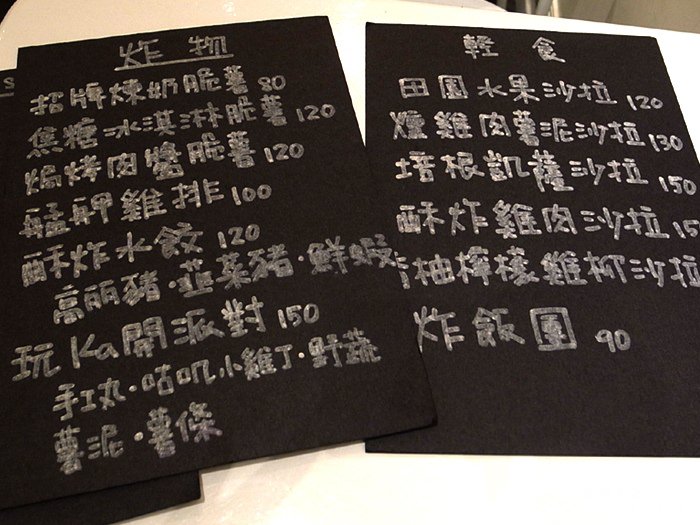 炸物
招牌煉奶脆薯 80
焦糖冰淇淋脆薯 120
焗烤肉醬脆薯 120
艋舺雞排 100
酥炸水餃 120
高丽豬·韮菜豬·鮮蝦
玩Ka開派對 150
手工丸·咕叽小雞丁·野蔬
薯泥·薯條
輕食
田園水果沙拉 120
燻雞肉薯泥沙拉 130
培根凱薩沙拉 150
酥炸雞肉沙拉 15
柚檸檬雞柳沙拉
炸飯團 90